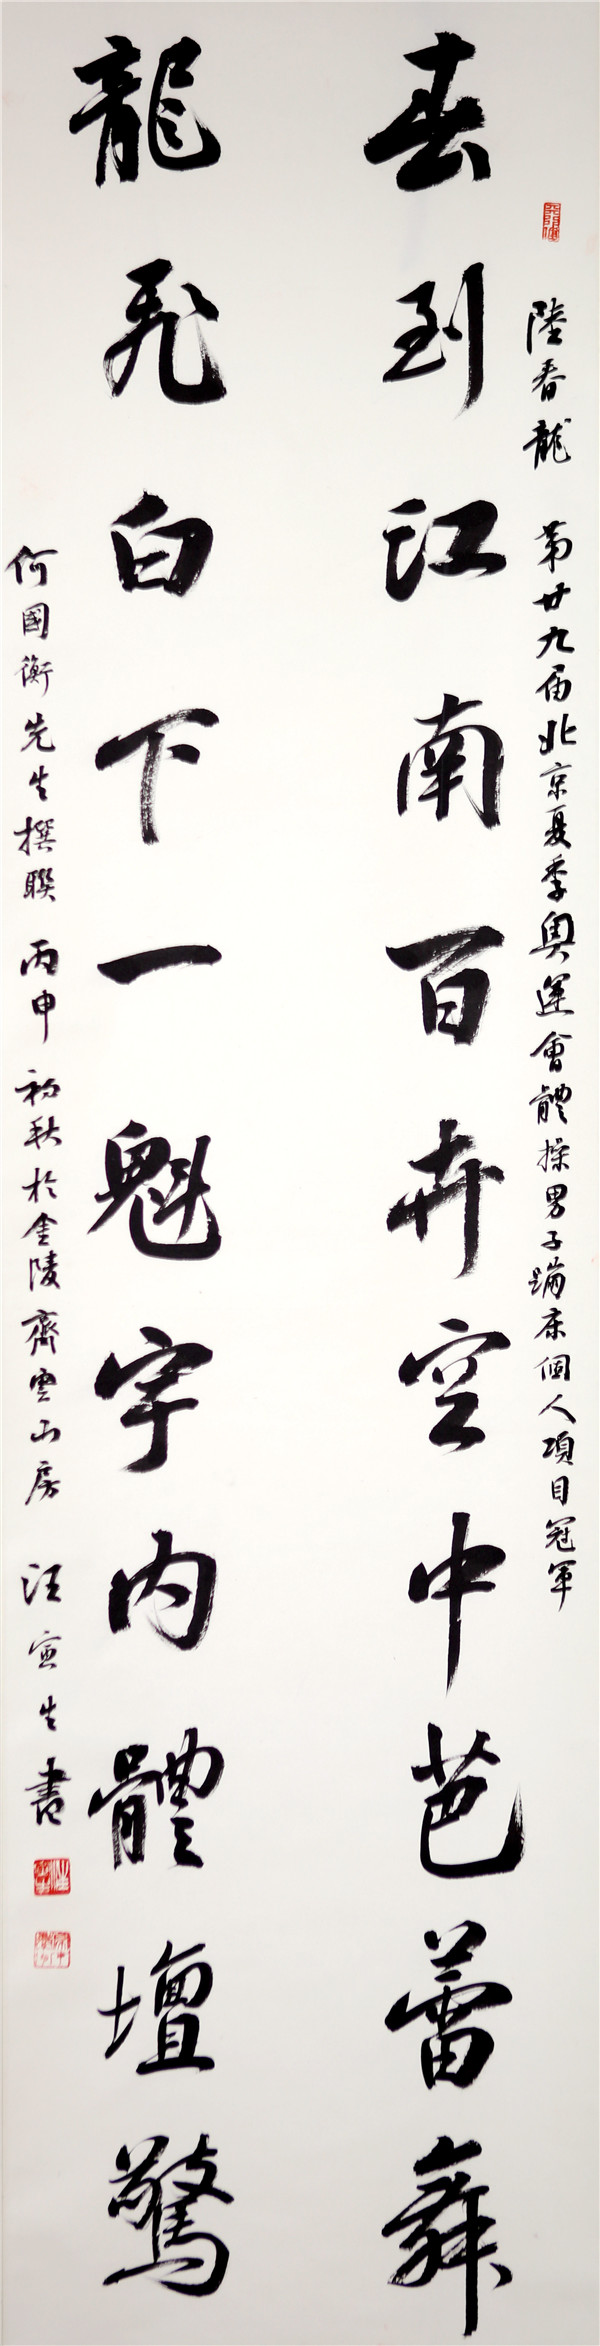 陸春龍 第廿九届北京夏季奥運會體操男子蹦床個人項目冠軍
春到江南百卉空中芭蕾舞
龍飛白下一魁宇内體壇驚
何國衡先生撰聯 丙申初秋於金陵齊雲山房 汪寅生書